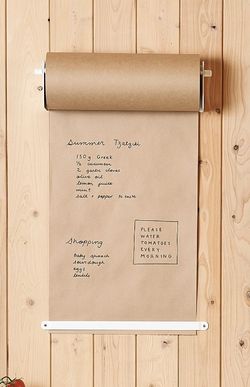 Summer Tzatziki
150g Greek
½ cucumber
2 garlic cloves
olive oil
lemon juice
mint
salt + pepper to taste
PLEASE
WATER
TOMATOES
EVERY
MORNING
Shopping
baby spinach
sourdough
eggs
lentils